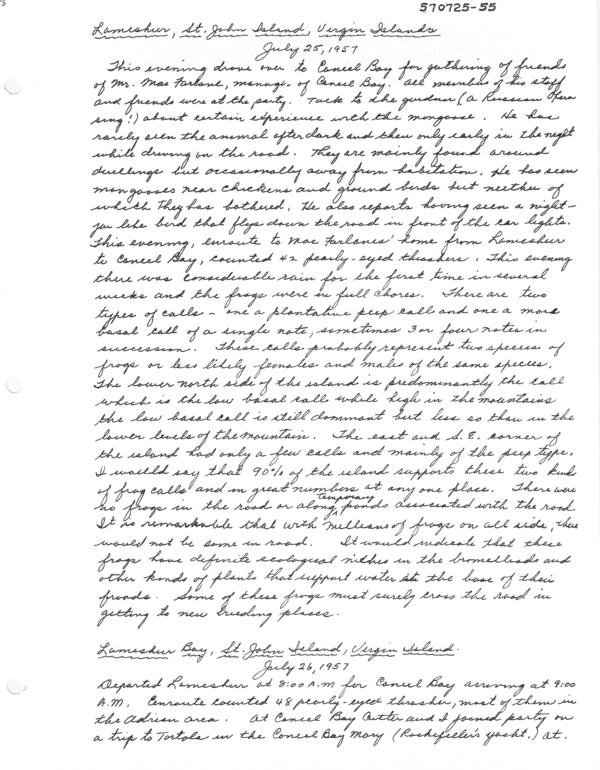 570725-55
Lameshur, St. John Island, Virgin Islands
July 25, 1957
This evening drove over to Caneel Bay for gathering of friends
of Mr. Mac Farlane, manage. of Caneel Bay. All members of his staff
and friends were at the party. Talk to the gardner (a Russian Opera
sing!) about certain experience with the mongoose. He has
rarely seen the animal after dark and then only early in the night
while driving on the road. They are mainly found around
dwellings but occasionally away from habitation. He has seen
mongooses near chickens and ground birds but neither of
which they has bothered. He also reports having seen a night-
jar like bird that flys down the road in front of the car lights.
This evening, enroute to Mac Farlanes' home from Lameshur
to Caneel Bay, counted 42 pearly-eyed thrashers. This evening
there was considerable rain for the first time in several
weeks and the frogs were in full chores. There are two
types of calls - one a plantative peep call and one a more
basal call of a single note, sometimes 3 or four notes in
succession. These calls probably represent two species of
frogs or less likely females and males of the same species.
The lower north side of the island is predominantly the call
which is the low basal call while high in the mountains
the low basal call is still dominant but less so than in the
lower levels of the mountain. The east and S.E. corner of
the island had only a few calls and mainly of the peep type.
I would say that 90% of the island supports these two kinds
of frog calls and in great numbers at any one place. There were
no frogs in the road or along temporary ponds associated with the road.
It is remarkable that with milleans of frogs on all side, there
would not be some in road. It would indicate that these
frogs have definite ecological nithes in the bromeliads and
other konds of plants that support water at the base of their
fronds. Some of these frogs must surely cross the road in
getting to new breeding places.
Lameshur Bay, St. John Island, Virgin Island.
July 26, 1957
Departed Lameshur at 8:00 A.M for Caneel Bay arriving at 9:00
A.M. Enroute counted 48 pearly-eyed thrasher, most of them in
the Adrian area. At Caneel Bay Cutter and I joined party on
a trip to Tortola in the Caneel Bay Mary (Rockefeller's yacht.) At.